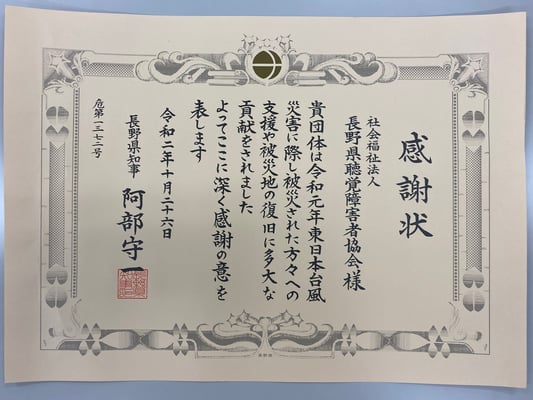 感謝状
社会福祉法人
長野県聴覚障害者協会様
貴団体は令和元年東日本台風
災害に際し被災された方々への
支援や被災地の復旧に多大な
貢献をされました
よってここに深く感謝の意を
表します
令和二年十月二十六日
長野県知事 阿部守一
危第一三七二号